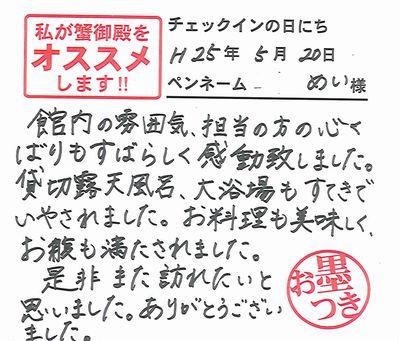 私が蟹御殿を
オススメ
します!!
チェックインの日にち
H25年 5月 20日
ペンネーム めい様
館内の雰囲気、担当の方の心く
ばりもすばらしく感動致しました。
貸切露天風呂、大浴場もすてきで
いやされました。お料理も美味しく、
お腹も満たされました。
是非また訪れたいと
思いました。ありがとうござい
ました。
お墨つき